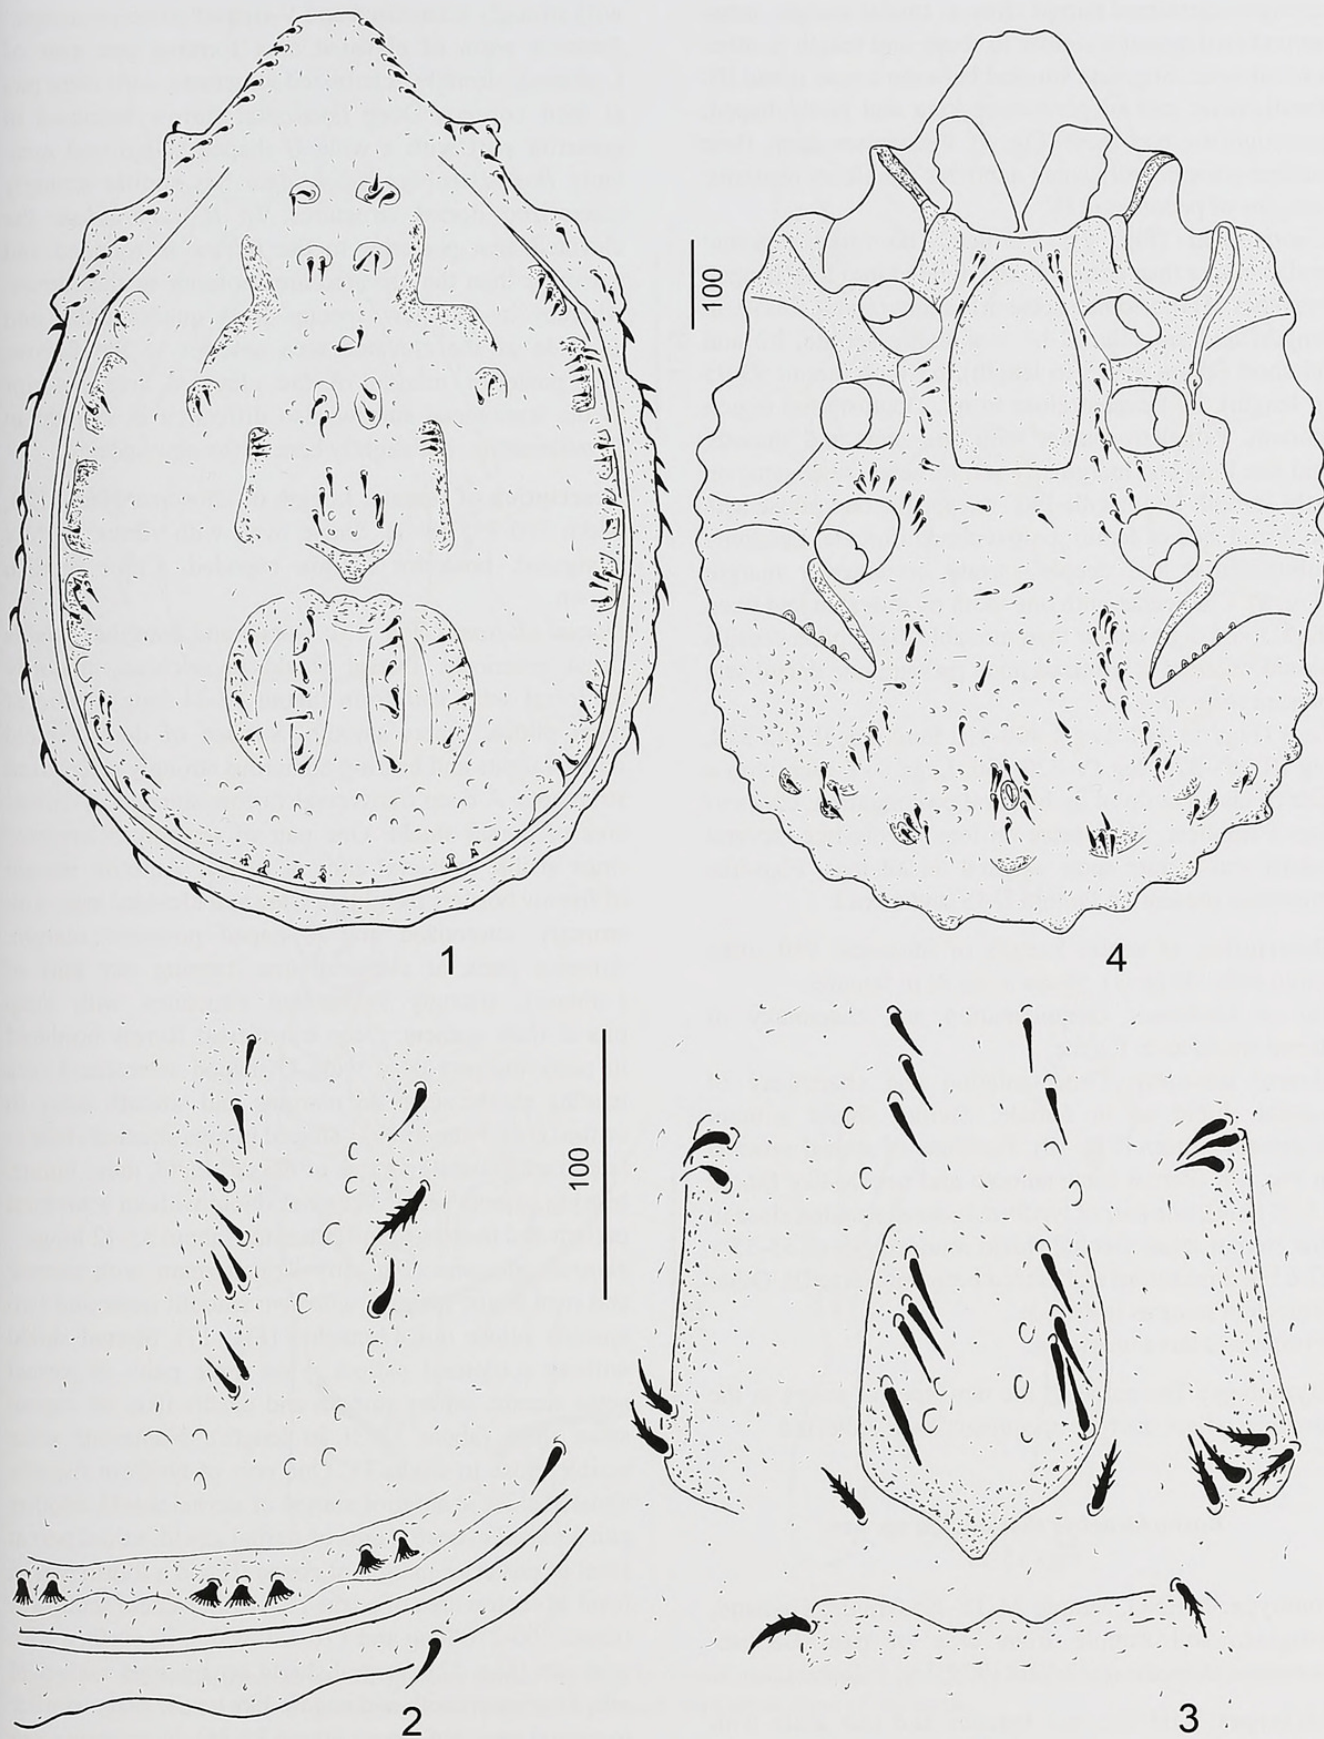 100
1
4
100
2
3